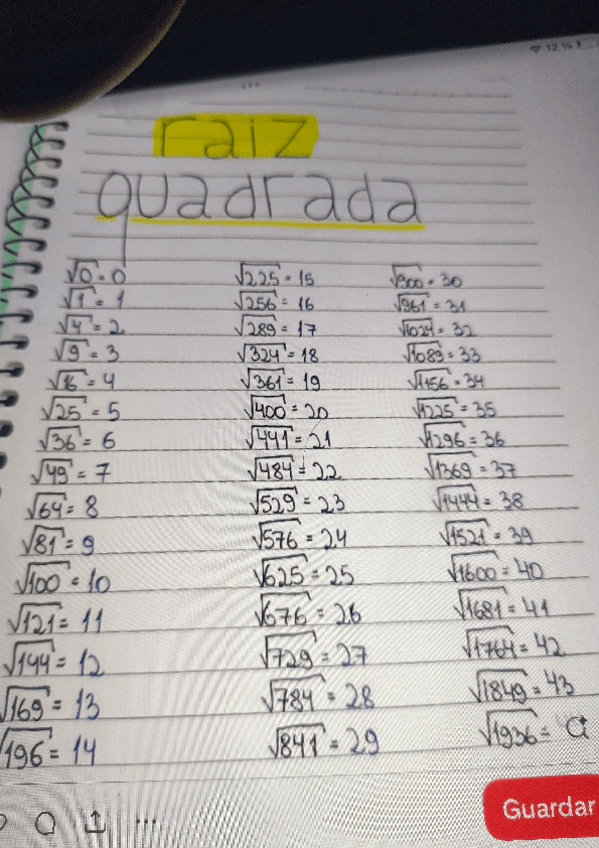 12 %
raiz
quadrada
√0 = 0
√1 = 1
√4 = 2
√9 = 3
√16 = 4
√25 = 5
√36 = 6
√49 = 7
√64 = 8
√81 = 9
√100 = 10
√121 = 11
√144 = 12
√169 = 13
√196 = 14
√225 = 15
√256 = 16
√289 = 17
√324 = 18
√361 = 19
√400 = 20
√441 = 21
√484 = 22
√529 = 23
√576 = 24
√625 = 25
√676 = 26
√729 = 27
√784 = 28
√841 = 29
√900 = 30
√961 = 31
√1024 = 32
√1089 = 33
√1156 = 34
√1225 = 35
√1296 = 36
√1369 = 37
√1444 = 38
√1521 = 39
√1600 = 40
√1681 = 41
√1764 = 42
√1849 = 43
√1936 =
Guardar